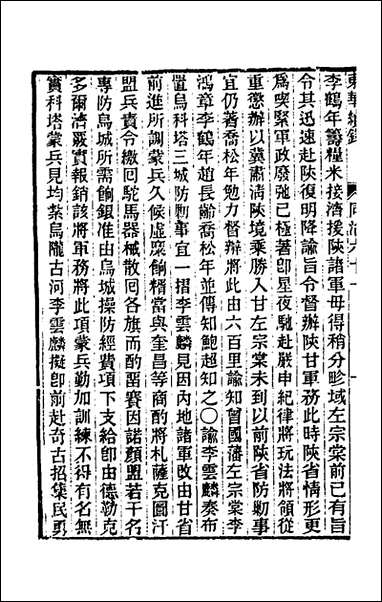 東華續錄　同治六十一　一
李鶴年籌糧米接濟援陝諸軍毋得稍分畛域左宗棠前已有旨
令其迅速赴陝復明降諭旨令督辦陝甘軍務此時陝省情形更
爲喫緊軍政廢弛已極著卽星夜馳赴嚴申紀律將玩法將領從
重懲辦以冀肅淸陝境乘勝入甘左宗棠未到以前陝省防勦事
宜仍著喬松年勉力督辦將此由六百里諭知曾國藩左宗棠李
鴻章李鶴年趙長齡喬松年並傳知鮑超知之〇諭李雲麟奏布
置烏科塔三城防勦事宜一摺李雲麟見因內地諸軍改由甘省
前進所調蒙兵久候虛糜餉糈當與奎昌等商酌將札薩克圖汗
盟兵責令繳回駝馬器械散回各旗而酌畱賽因諾顏盟若干名
專防烏城所需餉銀准由烏城操防經費項下支給卽由德勒克
多爾濟覈實報銷該將軍務將此項蒙兵勤加訓練不得有名無
實科塔蒙兵見均紮烏隴古河李雲麟擬卽前赴奇古招集民勇